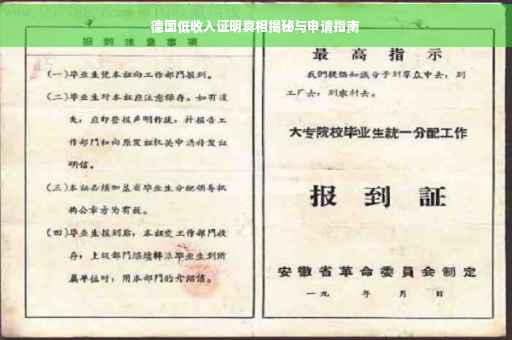 德国低收入证明真相揭秘与申请指南
报到注意事项
(一)毕业生凭本证向工作部门报到。
(二)毕业生对本证应注意保存。如有遗
失,应即登报声明作废,并报告工
作部门和向原发证机关申请补发证
明信。
(三)本证必须加盖省毕业生分配领导机
构公章方为有效。
(四)毕业生报到后,本证交工作部门收
存;上级部门继续转派毕业生到所
属单位时,用本部门的介绍信。
最高指示
我们提倡知识分子到群众中去,到
工厂去,到农村去。
大专院校毕业生统一分配工作
报到证
安徽省革命委员会制定
一九 年 月 日